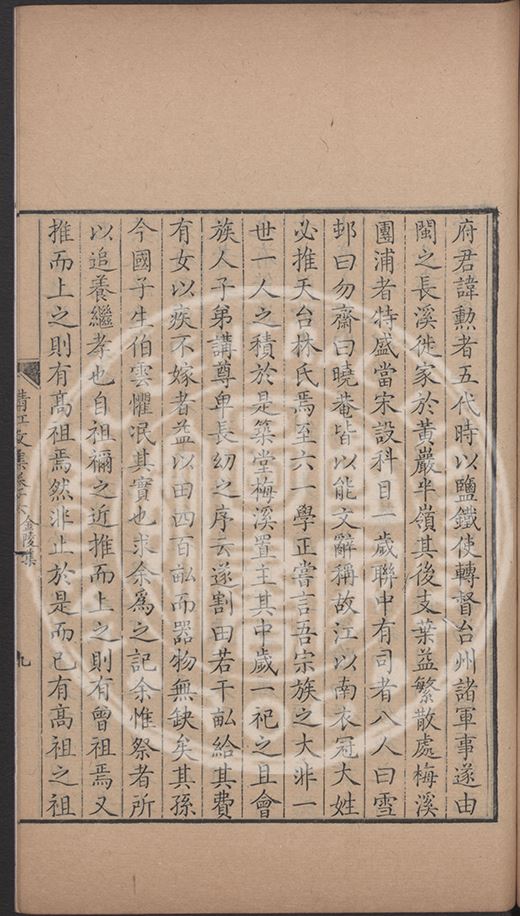 府君諱勲者五代時以鹽鐵使轉督台州諸軍事遂由
閩之長溪徙家於黃巖半嶺其後支葉益繁散處梅溪
團浦者特盛當宋設科目一歲聯中有司者八人曰雪
邨曰勿齋曰曉菴皆以能文辭稱故江以南衣冠大姓
必推天台林氏焉至六一學正嘗言吾宗族之大非一
世一人之積於是築堂梅溪置主其中歲一祀之且會
族人子弟講尊卑長幼之序云遂割田若干畝給其費
有女以疾不嫁者益以田四百畝而器物無缺矣其孫
今國子生伯雲懼泯其實也求余為之記余惟祭者所
以追養繼孝也自祖禰之近推而上之則有曾祖焉又
推而上之則有高祖焉然非止於是而已有高祖之祖
清江文集卷十八 金陵集
九